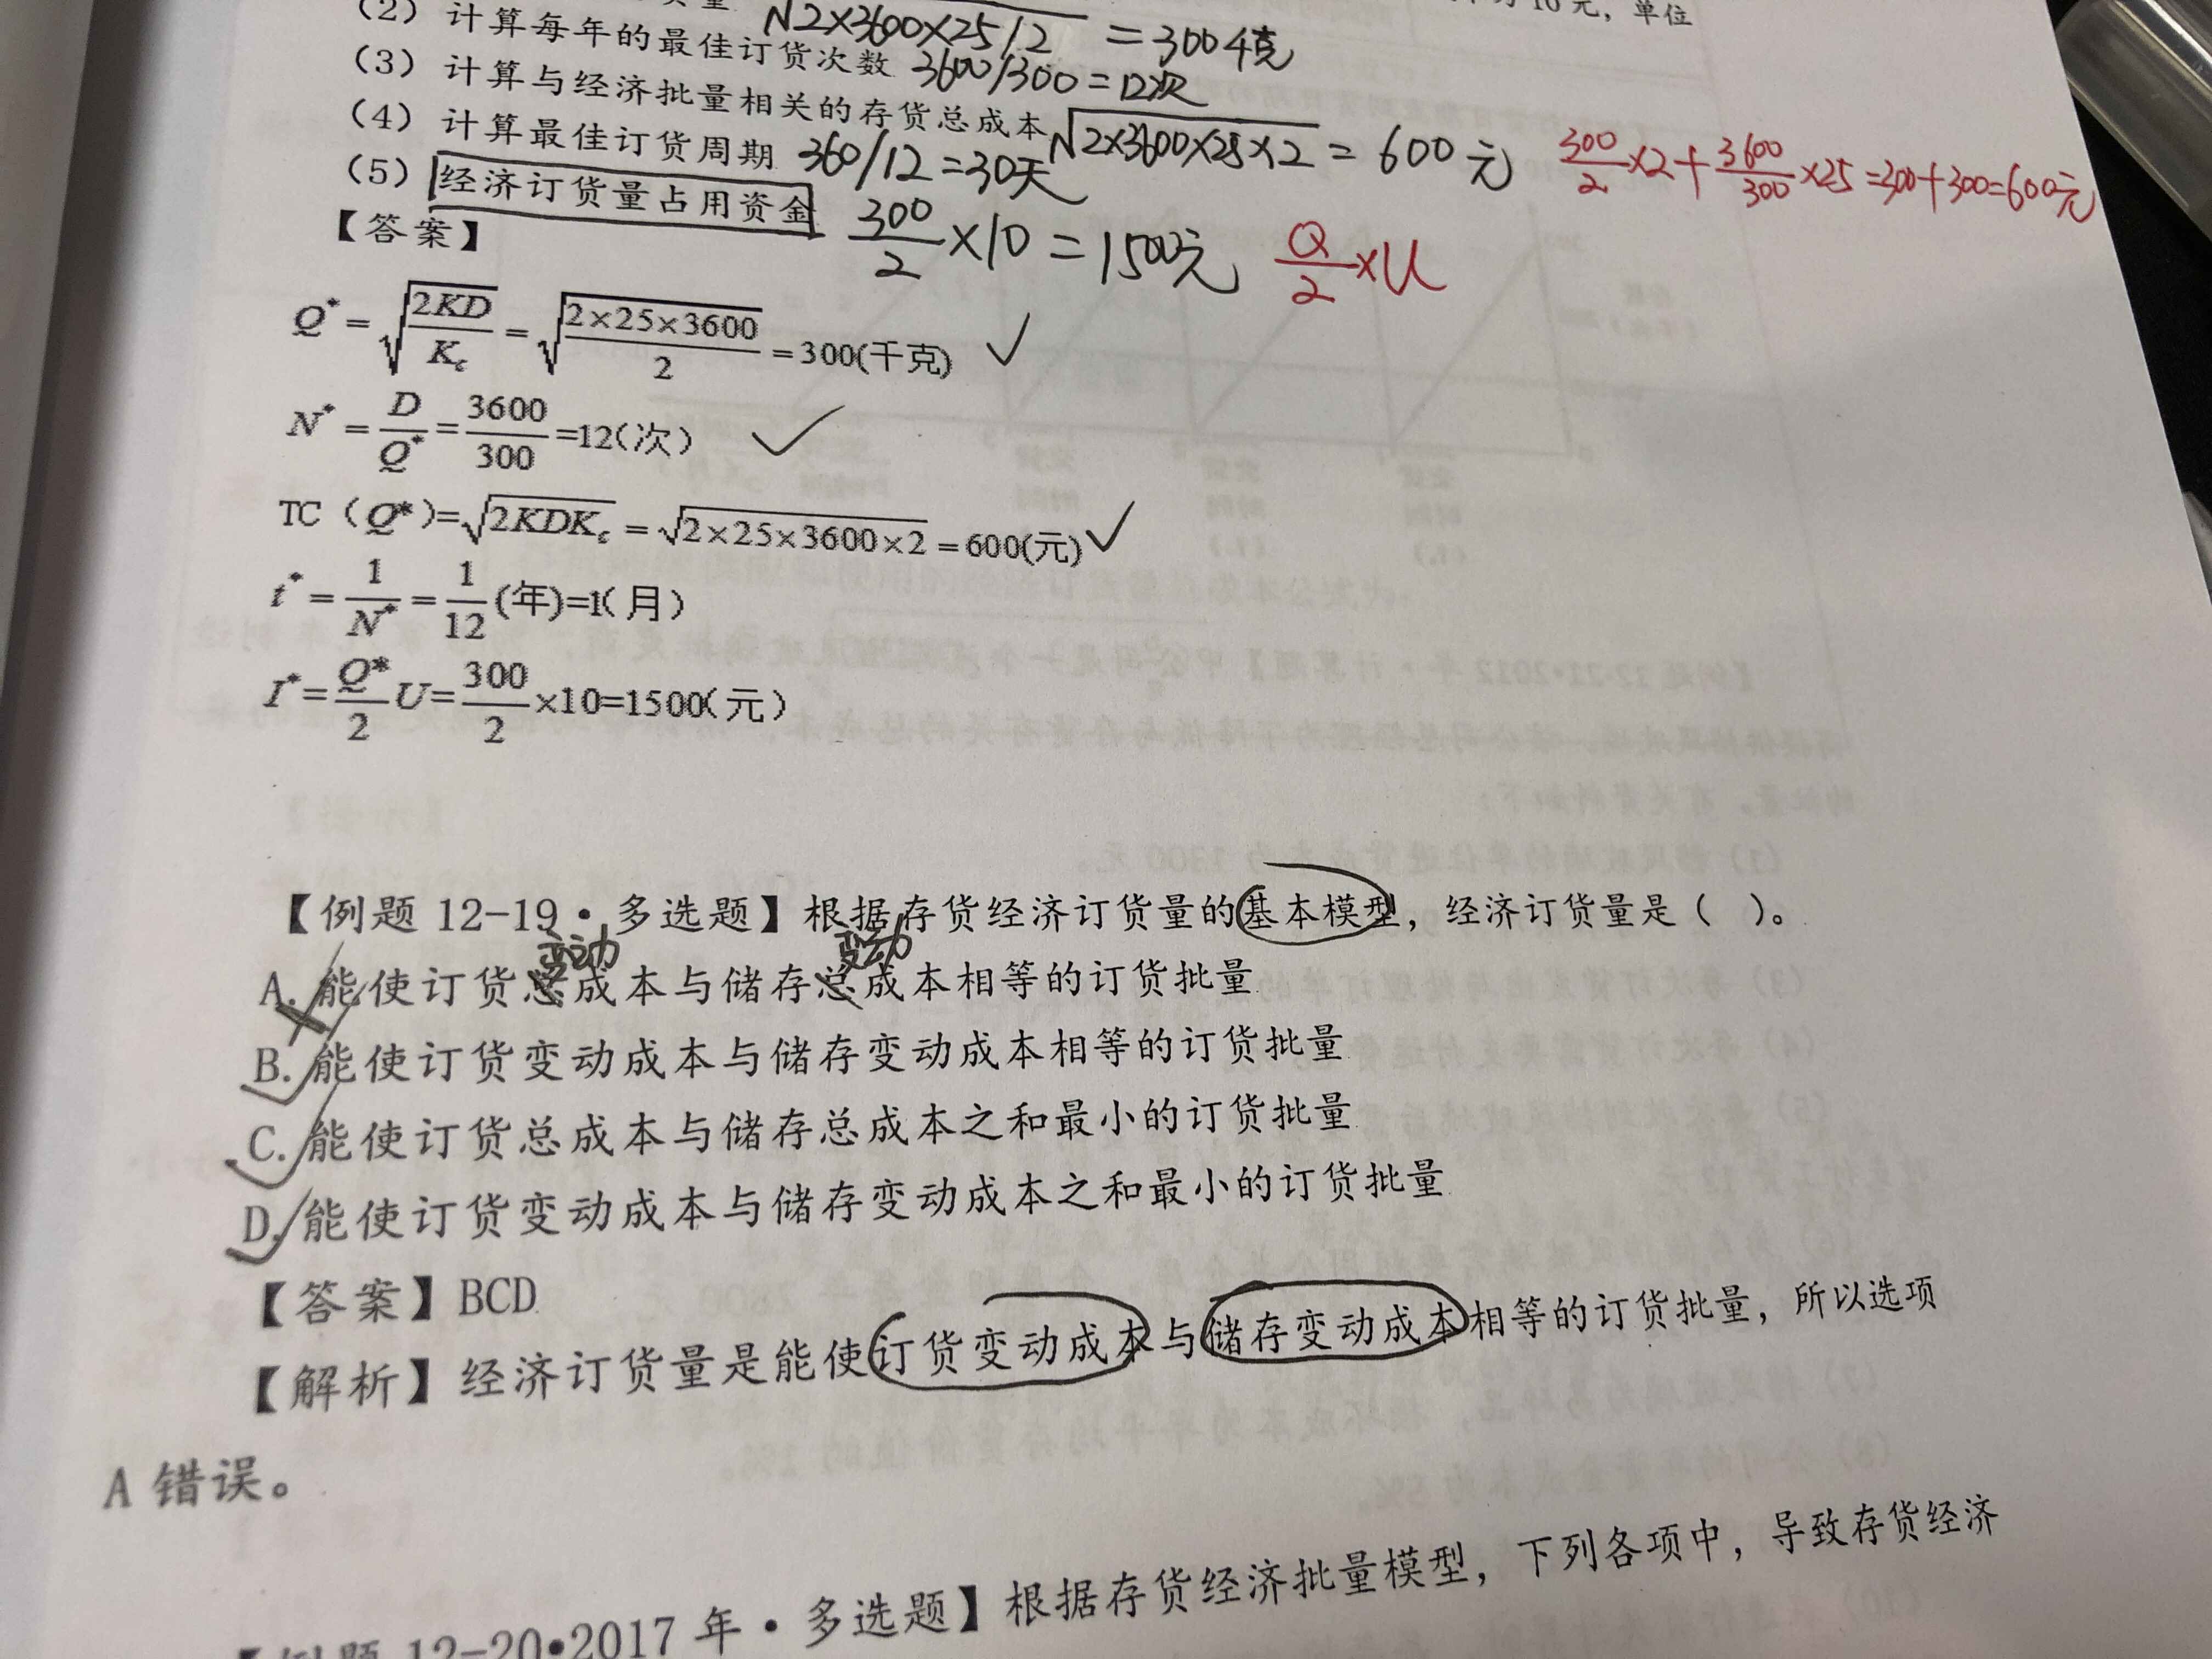 量 √2×3600×25/2 = 300千克
为10元，单位
（2）计算每年的最佳订货次数 3600/300=12次
（3）计算与经济批量相关的存货总成本 √2×3600×25×2 = 600元 300/2×2+3600/300×25=300+300=600元
（4）计算最佳订货周期 360/12=30天
（5）经济订货量占用资金 300/2×10=1500元 Q/2×U
【答案】
Q*=√2KD/Kc=√2×25×3600/2=300(千克)
N*=D/Q*=3600/300=12(次)
TC（Q*）=√2KDKc=√2×25×3600×2=600(元)
t*=1/N*=1/12(年)=1(月)
I*=Q*/2U=300/2×10=1500(元)
【例题 12-19·多选题】根据存货经济订货量的基本模型，经济订货量是（ ）。
变动 变动
A. 能使订货总成本与储存总成本相等的订货批量
B. 能使订货变动成本与储存变动成本相等的订货批量
C. 能使订货总成本与储存总成本之和最小的订货批量
D. 能使订货变动成本与储存变动成本之和最小的订货批量
【答案】BCD
【解析】经济订货量是能使订货变动成本与储存变动成本相等的订货批量，所以选项
A 错误。
【例题 12-20•2017 年·多选题】根据存货经济批量模型，下列各项中，导致存货经济